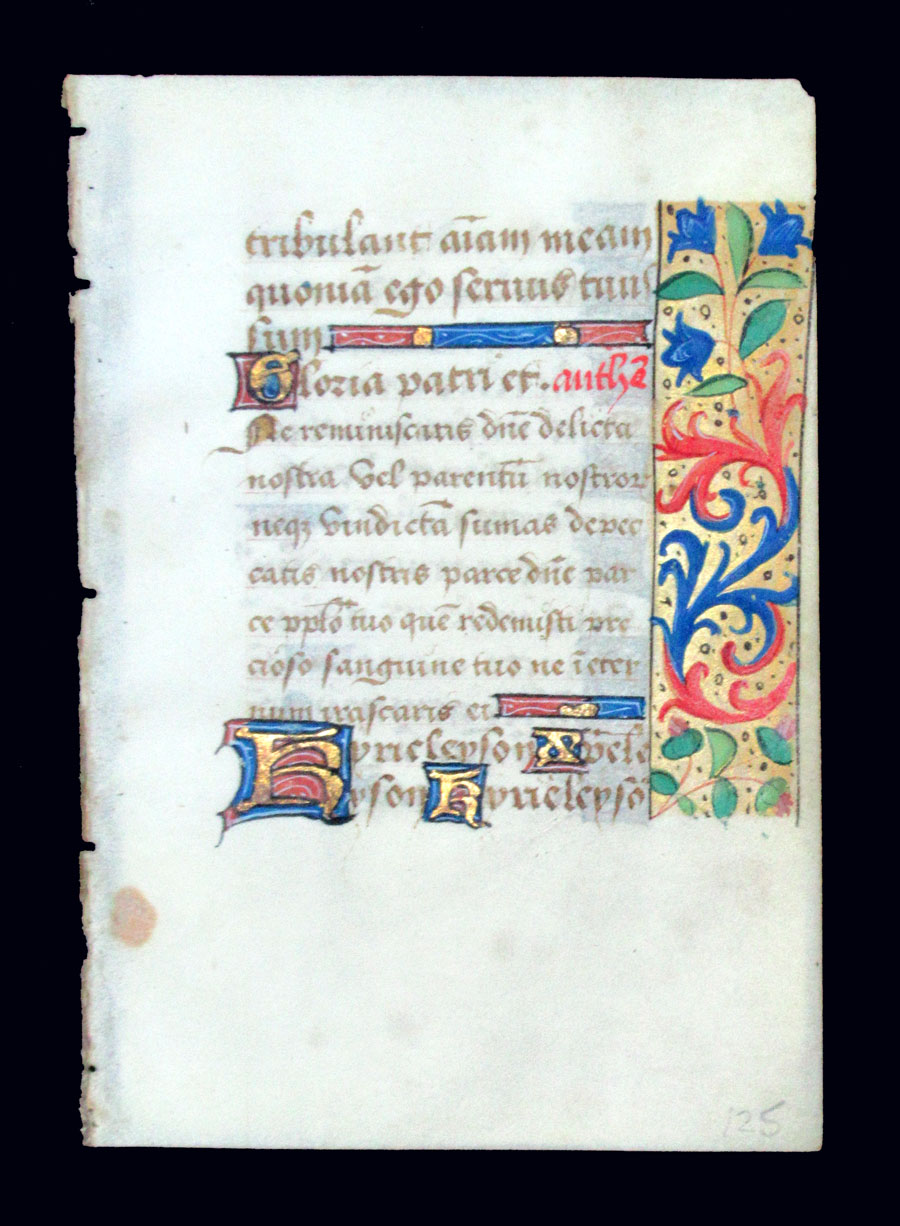 tribulant aīam meam
quoniā ego seruus tuus
sum
Gloria patri et. anthā
Ne reminiscaris dn̄e delicta
nostra vel parentū nostror
neqꝫ vindictā sumas de pec
catis nostris parce dn̄e par
ce ppl̄o tuo quē redemisti pre
cioso sanguine tuo ne ī eter
num irascaris ei
Kyrieleyson Xp̄ele
yson Kyrieleysō
125